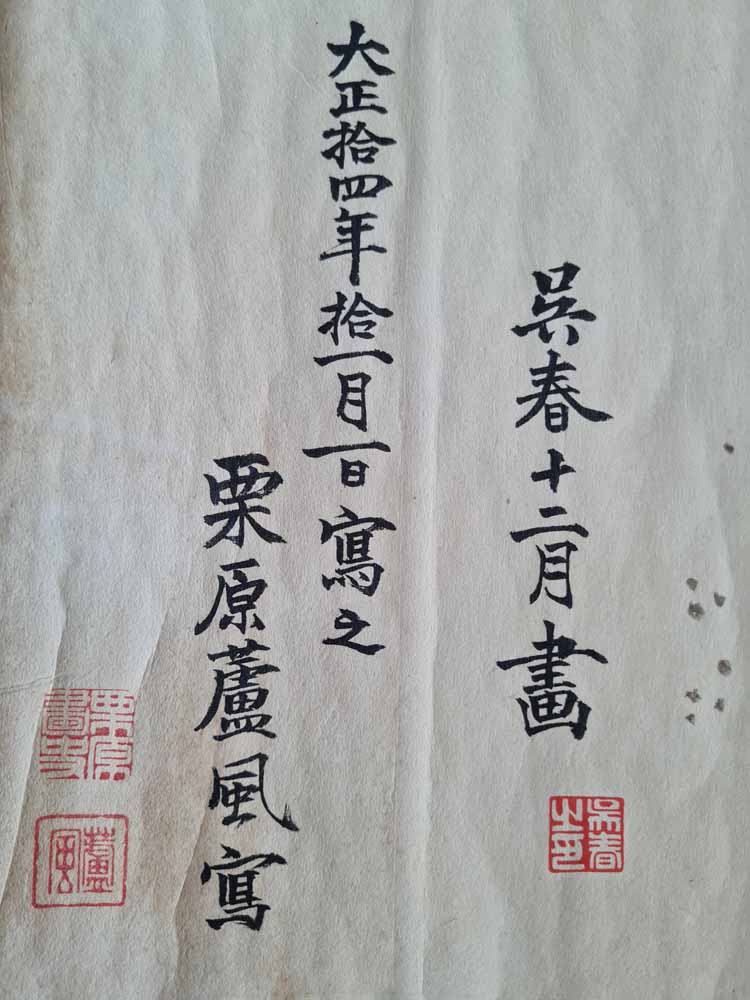 呉春十二月畫
呉春之印
大正拾四年拾一月一日寫之
栗原蘆風寫
栗原畫史
蘆風